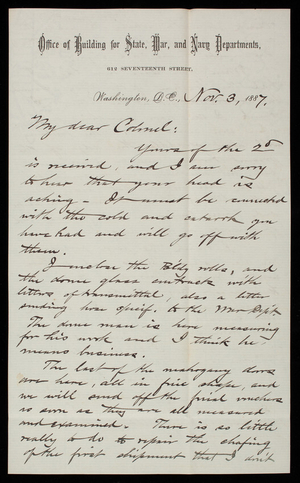 Office of Building for State, War, and Navy Departments,
612 SEVENTEENTH STREET,
Washington, D.C., Nov. 3, 1887.
My dear Colonel:
Yours of the 2d
is received, and I am sorry
to hear that your head is
aching - It must be connected
with the cold and you
have had and will go off with
them.
I enclose the Bldg rolls, and
the dome glass contracts with
letters of transmittal, also a letter
sending specif. to the War Dept
The dome man is here measuring
for his work and I think he
means business.
The last of the mahogany doors
are here, all in fine shape, and
we will send off the final vouchers
as soon as they are all measured
and examined. There is so little
really to do to repair the shaping
of the first shipment that I don't